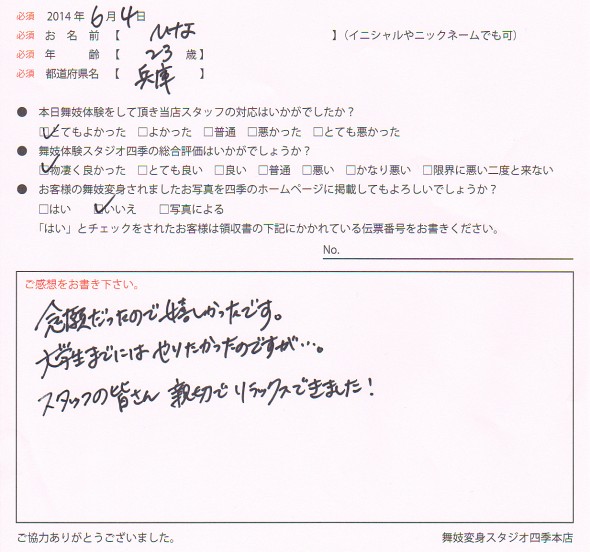 必須 2014年6月4日
必須 お名前【 ひな 】(イニシャルやニックネームでも可)
必須 年齢【 23 歳】
必須 都道府県名【 兵庫 】
● 本日舞妓体験をして頂き当店スタッフの対応はいかがでしたか?
☑とてもよかった □よかった □普通 □悪かった □とても悪かった
● 舞妓体験スタジオ四季の総合評価はいかがでしょうか?
☑物凄く良かった □とても良い □良い □普通 □悪い □かなり悪い □限界に悪い二度と来ない
● お客様の舞妓変身されましたお写真を四季のホームページに掲載してもよろしいでしょうか?
□はい ☑いいえ □写真による
「はい」とチェックをされたお客様は領収書の下記にかかれている伝票番号をお書きください。
No.
ご感想をお書き下さい。
念願だったので嬉しかったです。
大学生までにはやりたかったのですが…。
スタッフの皆さん 親切でリラックスできました!
ご協力ありがとうございました。 舞妓変身スタジオ四季本店